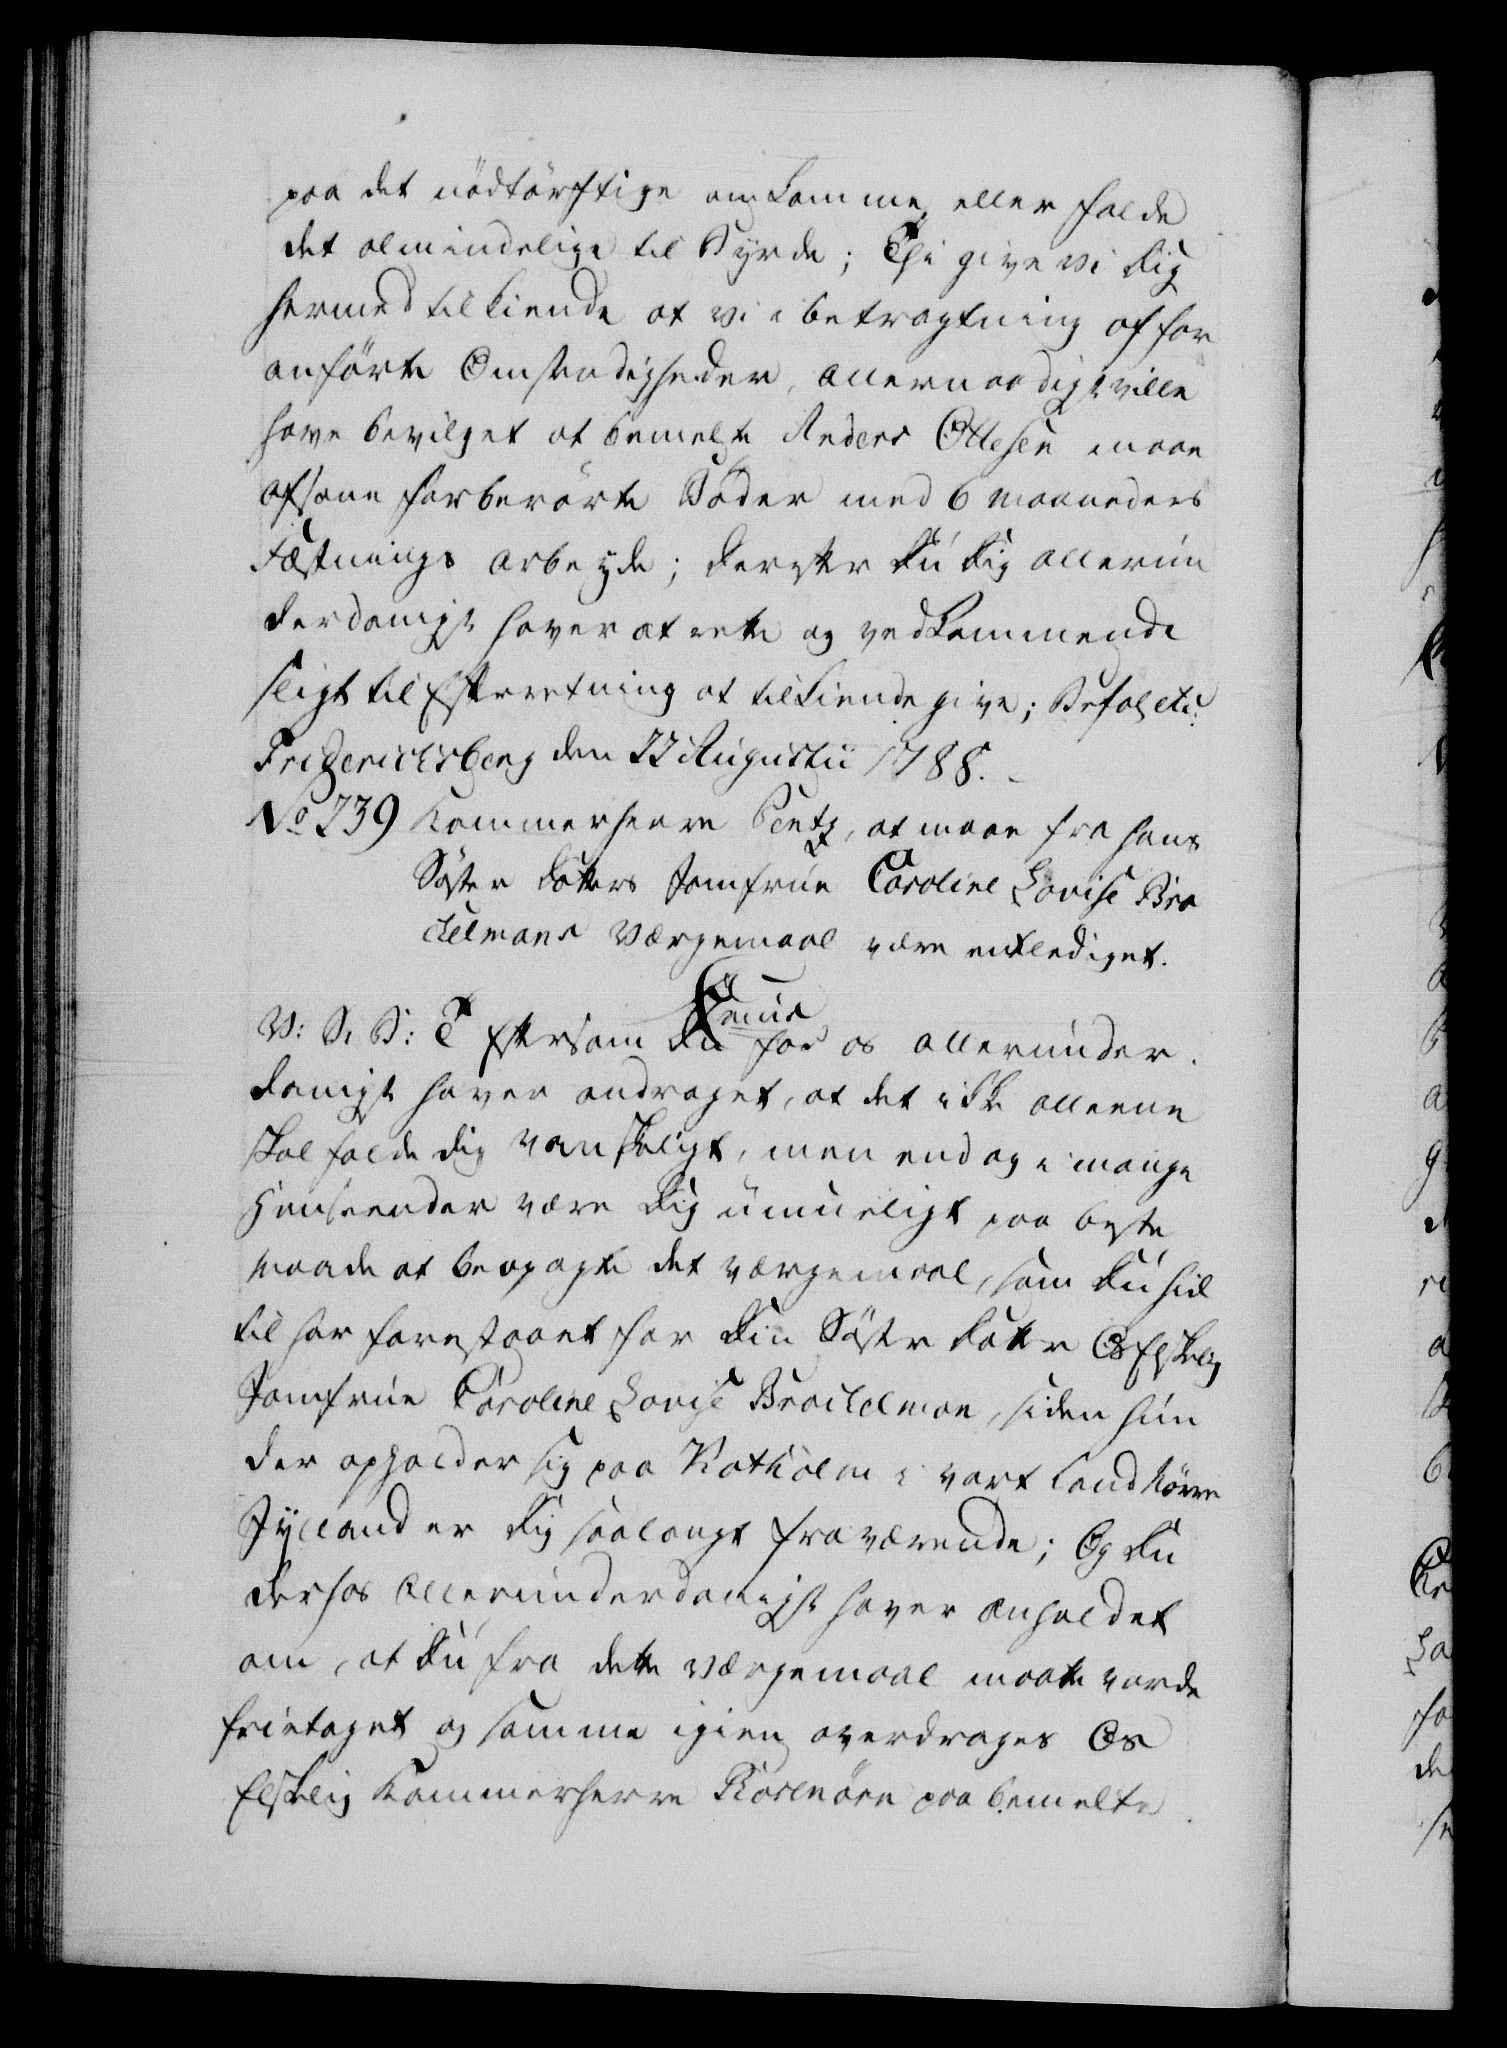 paa det nödtörftige omkomme, eller falde
det almindelige til Byrde; Thi give vi Dig
hermed tilkiende at vi i betragtning af for
anförte Omstændigheder, allernaadigst ville
have bevilget at bemelte Anders Ottesen maae
afsone forberörte Böder med 6 maaneders
Fæstnings arbeyde; derefter Du Dig allerun
derdanigst haver at rette og vedkommende
sligt til Efterretning at tilkiende give; Befal etc:
Friderichsberg den 22 Augustii 1788.
No 239 Kammerherre Pentz, at maae fra hans
Söster Datters Jomfrue Caroline Lovise Bro
ckelmans Værgemaal være entlediget.
V: S: B: T Eftersom Du for os allerunder
danigst haver andraget, at det ikke alleene
skal falde dig vanskeligt, men end og i mange
Henseender være Dig umueligt paa beste
maade at beopagte det værgemaal, som Du hid
til har forestaaet for Din Söster Datter Os Elskelig
Jomfrue Caroline Lovise Brockelman, siden hun
der opholder sig paa Katholm i vort Land Nörre
Jylland er Dig saalangt fraværende; Og Du
derhos allerunderdanigst haver anholdet
om, at Du fra dette værgemaal maatte vorde
frietaget og samme igien overdrages Os
Elskelig Kammerherre Rosenörn paa bemelte